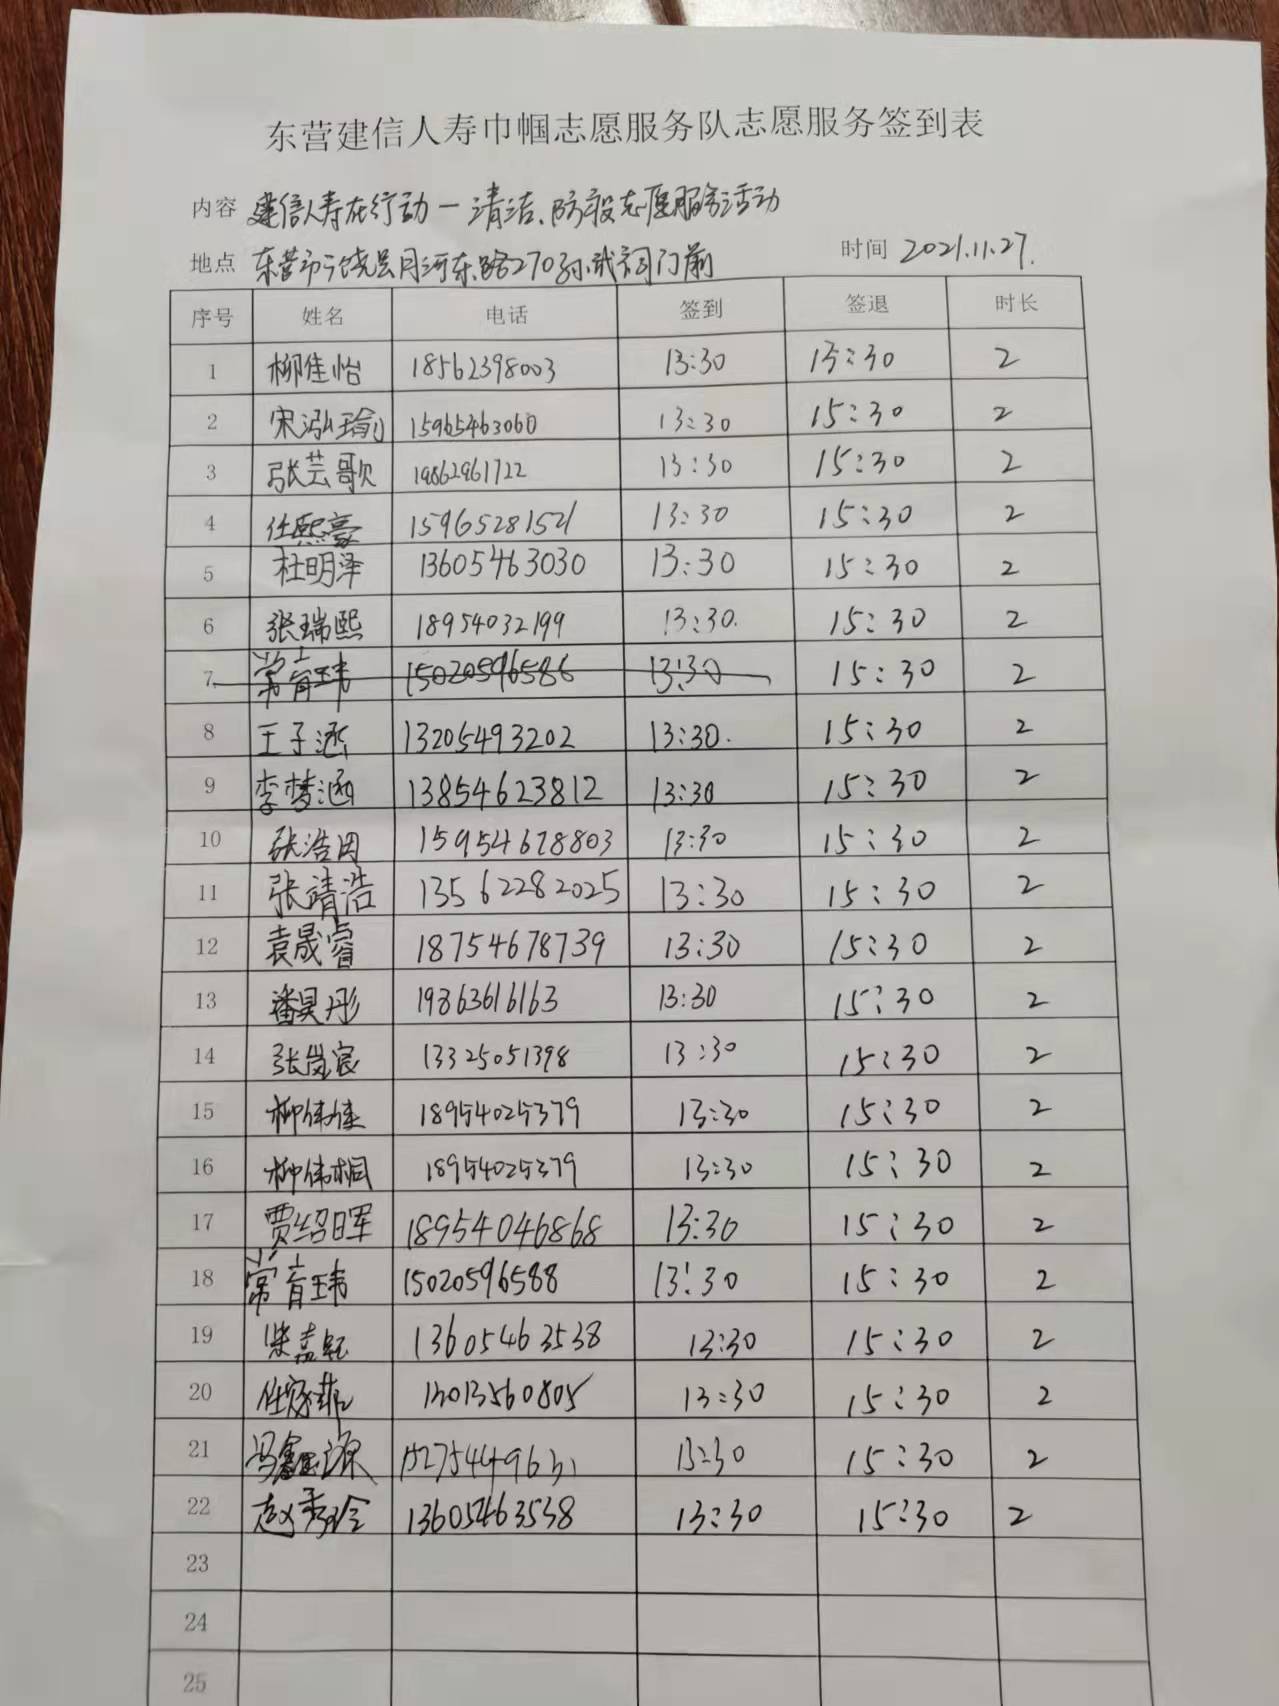 东营建信人寿巾帼志愿服务队志愿服务签到表
内容 建信人寿在行动一清洁、防疫志愿服务活动
地点 东营市广饶县月河东路270号小武祠门前 时间 2021.11.27.
序号 姓名 电话 签到 签退 时长
1 柳佳怡 18562398003 13:30 15:30 2
2 宋泓瑜 15965463060 13:30 15:30 2
3 张芸歌 19862961722 13:30 15:30 2
4 任熙豪 15965281521 13:30 15:30 2
5 杜明泽 13605463030 13:30 15:30 2
6 张瑞熙 18954032199 13:30. 15:30 2
7 常育玮 15020596586 13:30 15:30 2
8 王子涵 13205493202 13:30. 15:30 2
9 李梦涵 13854623812 13:30 15:30 2
10 张浩 15954678803 13:30 15:30 2
11 张靖浩 13562282025 13:30 15:30 2
12 袁晟睿 18754678739 13:30 15:30 2
13 潘昊彤 19863616163 13:30 15:30 2
14 张岚宸 13325051398 13:30 15:30 2
15 柳伟佳 18954025379 13:30 15:30 2
16 柳伟桐 18954025379 13:30 15:30 2
17 贾绍晖 18954046868 13:30 15:30 2
18 常育玮 15020596588 13:30 15:30 2
19 13605463538 13:30 15:30 2
20 13013560805 13:30 15:30 2
21 冯鑫源 13:30 15:30 2
22 赵秀玲 13605463538 13:30 15:30 2
23
24
25